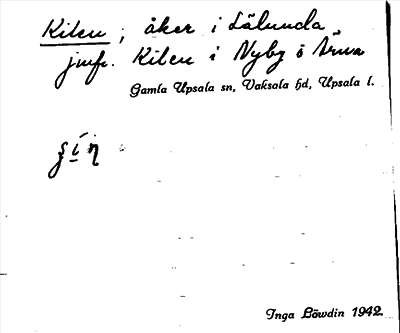 Kilen, åker i Lälunda
jmfr. Kilen i Nyby i Ärna
Gamla Upsala sn, Vaksala hd, Upsala l.
Inga Löwdin 1942.